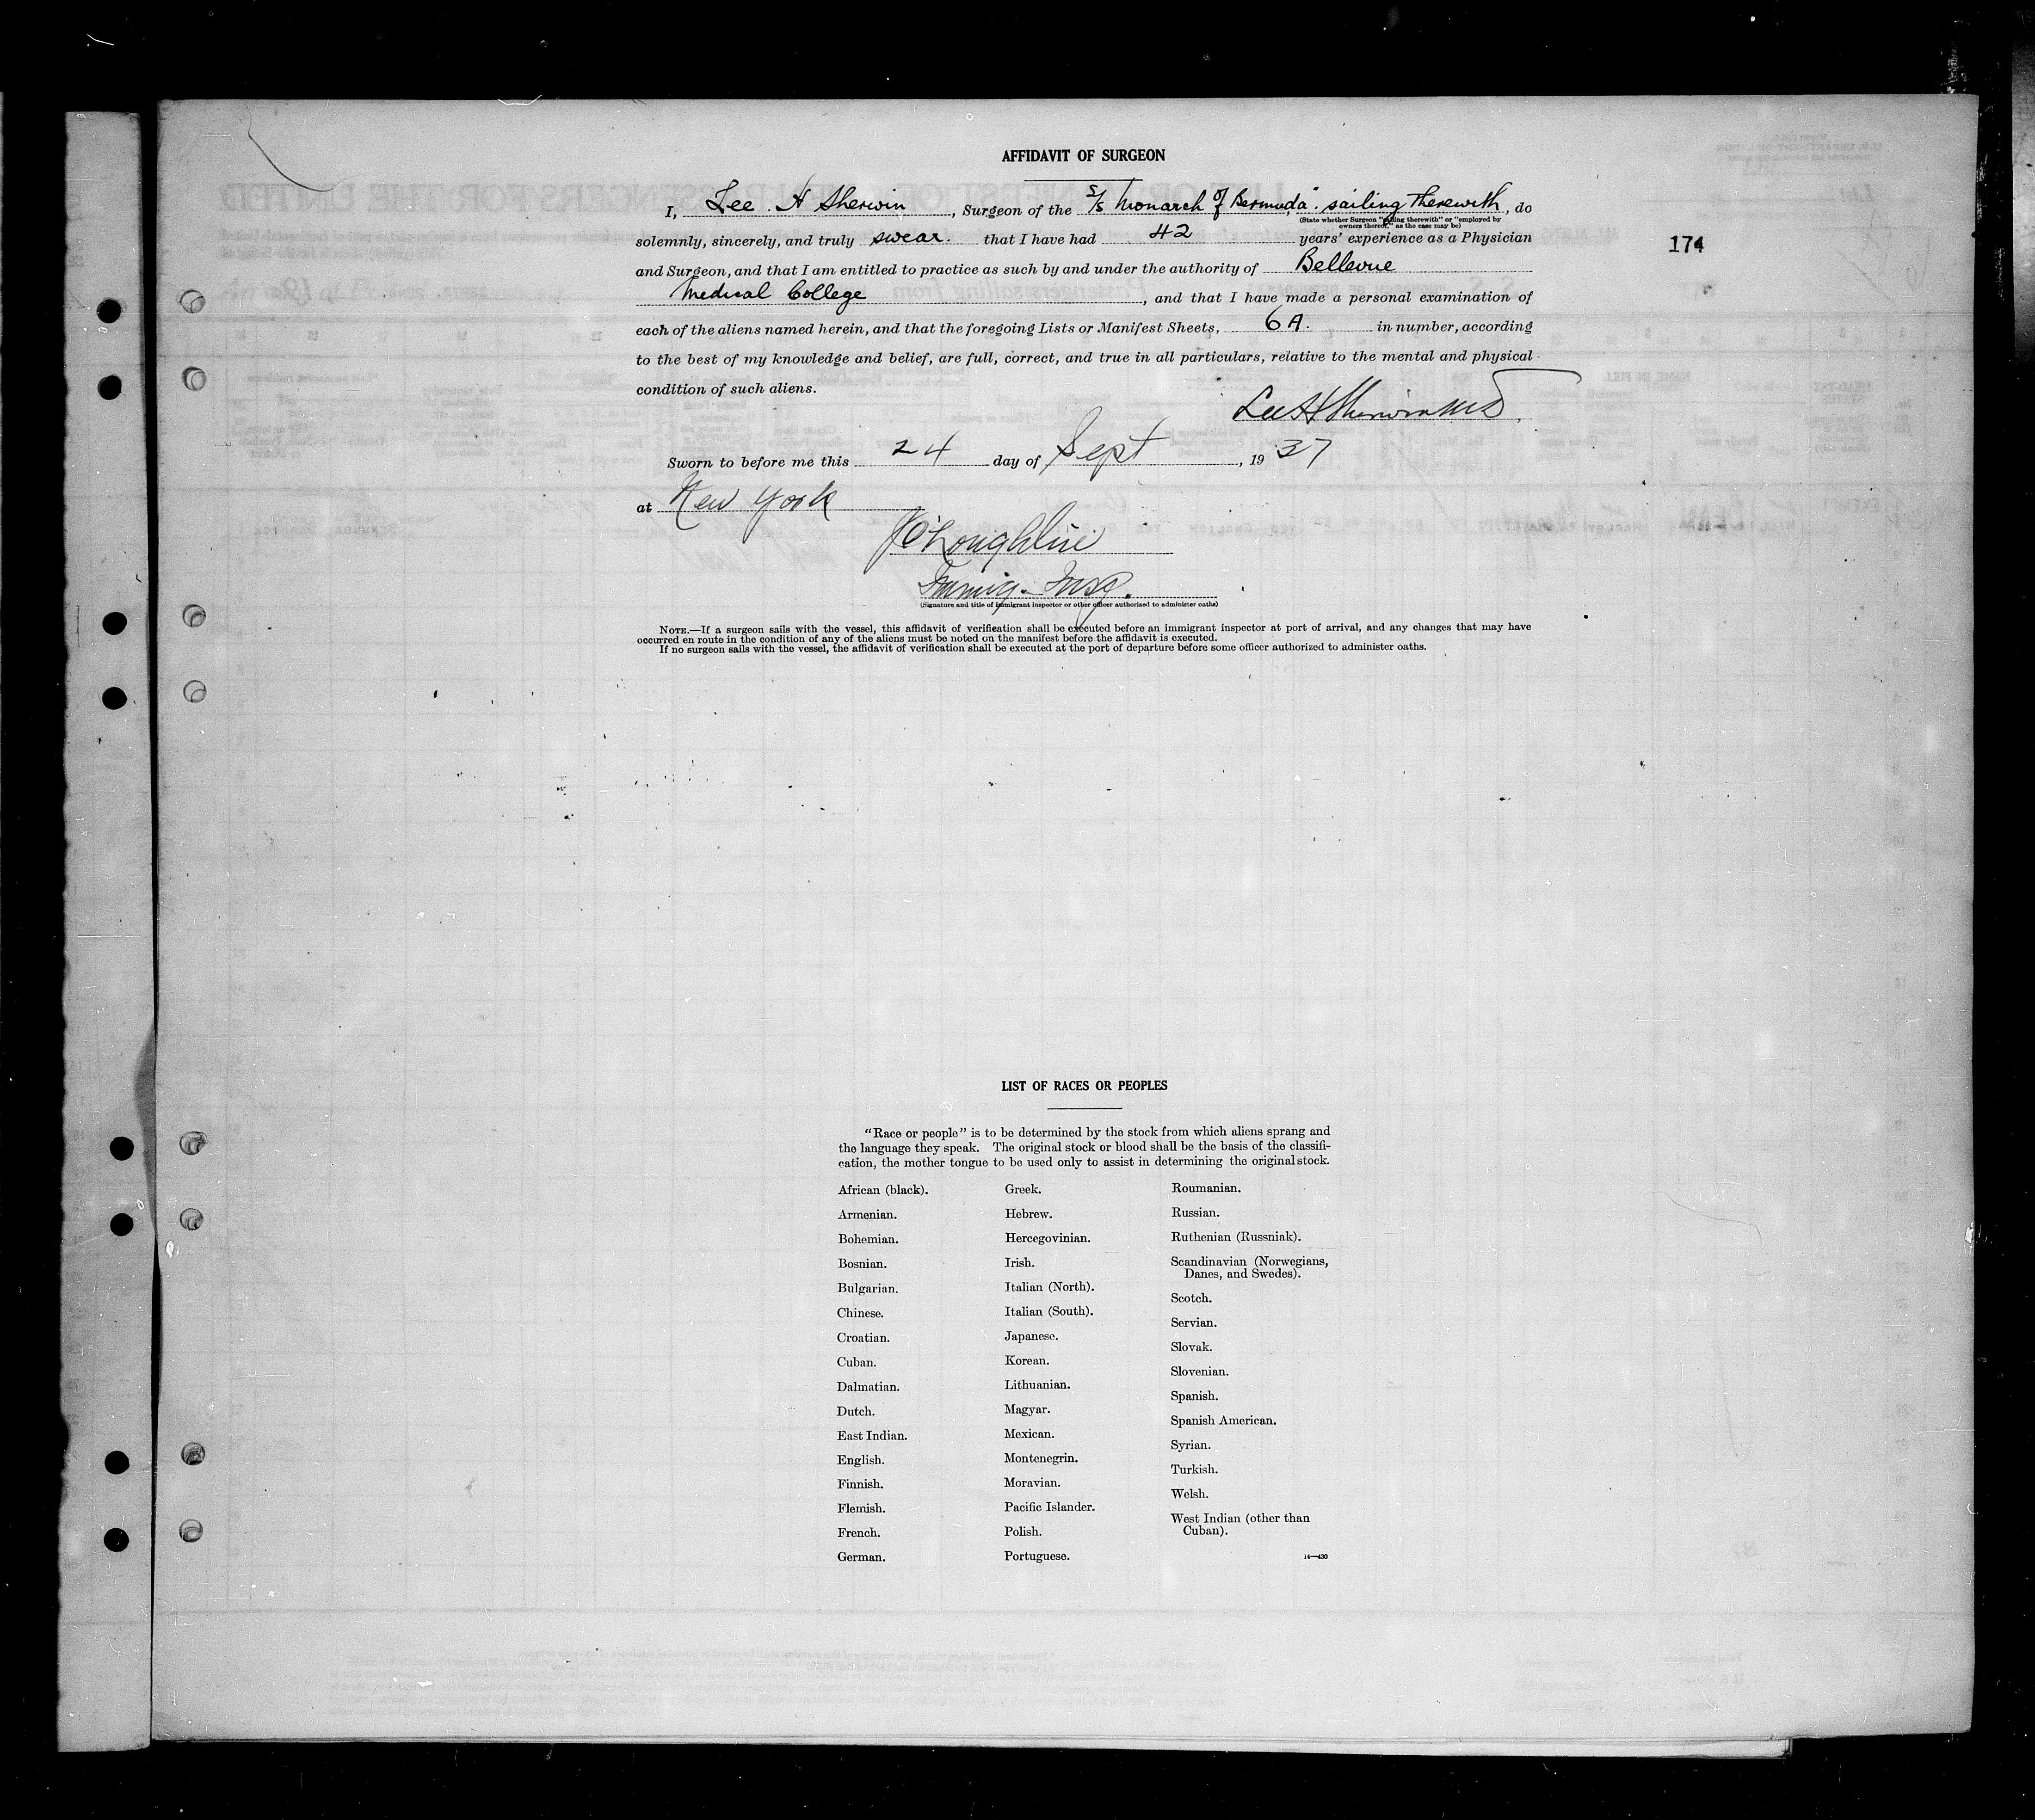 AFFIDAVIT OF SURGEON
I, Lee. H Sherwin, Surgeon of the S/S Monarch of Bermuda". sailing therewith, do
(State whether Surgeon "sailing therewith" or "employed by
owners thereof," as the case may be)
solemnly, sincerely, and truly swear. that I have had 42 years' experience as a Physician
174
and Surgeon, and that I am entitled to practice as such by and under the authority of Bellevue
Medical College, and that I have made a personal examination of
each of the aliens named herein, and that the foregoing Lists or Manifest Sheets, 6A. in number, according
to the best of my knowledge and belief, are full, correct, and true in all particulars, relative to the mental and physical
condition of such aliens.
Lee H Sherwin MD
Sworn to before me this 24 day of Sept, 1937
at New York
O'Loughlin
Immig. Insp.
(Signature and title of immigrant inspector or other officer authorized to administer oaths)
NOTE.—If a surgeon sails with the vessel, this affidavit of verification shall be executed before an immigrant inspector at port of arrival, and any changes that may have
occurred en route in the condition of any of the aliens must be noted on the manifest before the affidavit is executed.
If no surgeon sails with the vessel, the affidavit of verification shall be executed at the port of departure before some officer authorized to administer oaths.
LIST OF RACES OR PEOPLES
"Race or people" is to be determined by the stock from which aliens sprang and
the language they speak. The original stock or blood shall be the basis of the classifi-
cation, the mother tongue to be used only to assist in determining the original stock.
African (black).
Armenian.
Bohemian.
Bosnian.
Bulgarian.
Chinese.
Croatian.
Cuban.
Dalmatian.
Dutch.
East Indian.
English.
Finnish.
Flemish.
French.
German.
Greek.
Hebrew.
Hercegovinian.
Irish.
Italian (North).
Italian (South).
Japanese.
Korean.
Lithuanian.
Magyar.
Mexican.
Montenegrin.
Moravian.
Pacific Islander.
Polish.
Portuguese.
Roumanian.
Russian.
Ruthenian (Russniak).
Scandinavian (Norwegians,
Danes, and Swedes).
Scotch.
Servian.
Slovak.
Slovenian.
Spanish.
Spanish American.
Syrian.
Turkish.
Welsh.
West Indian (other than
Cuban).
14—430